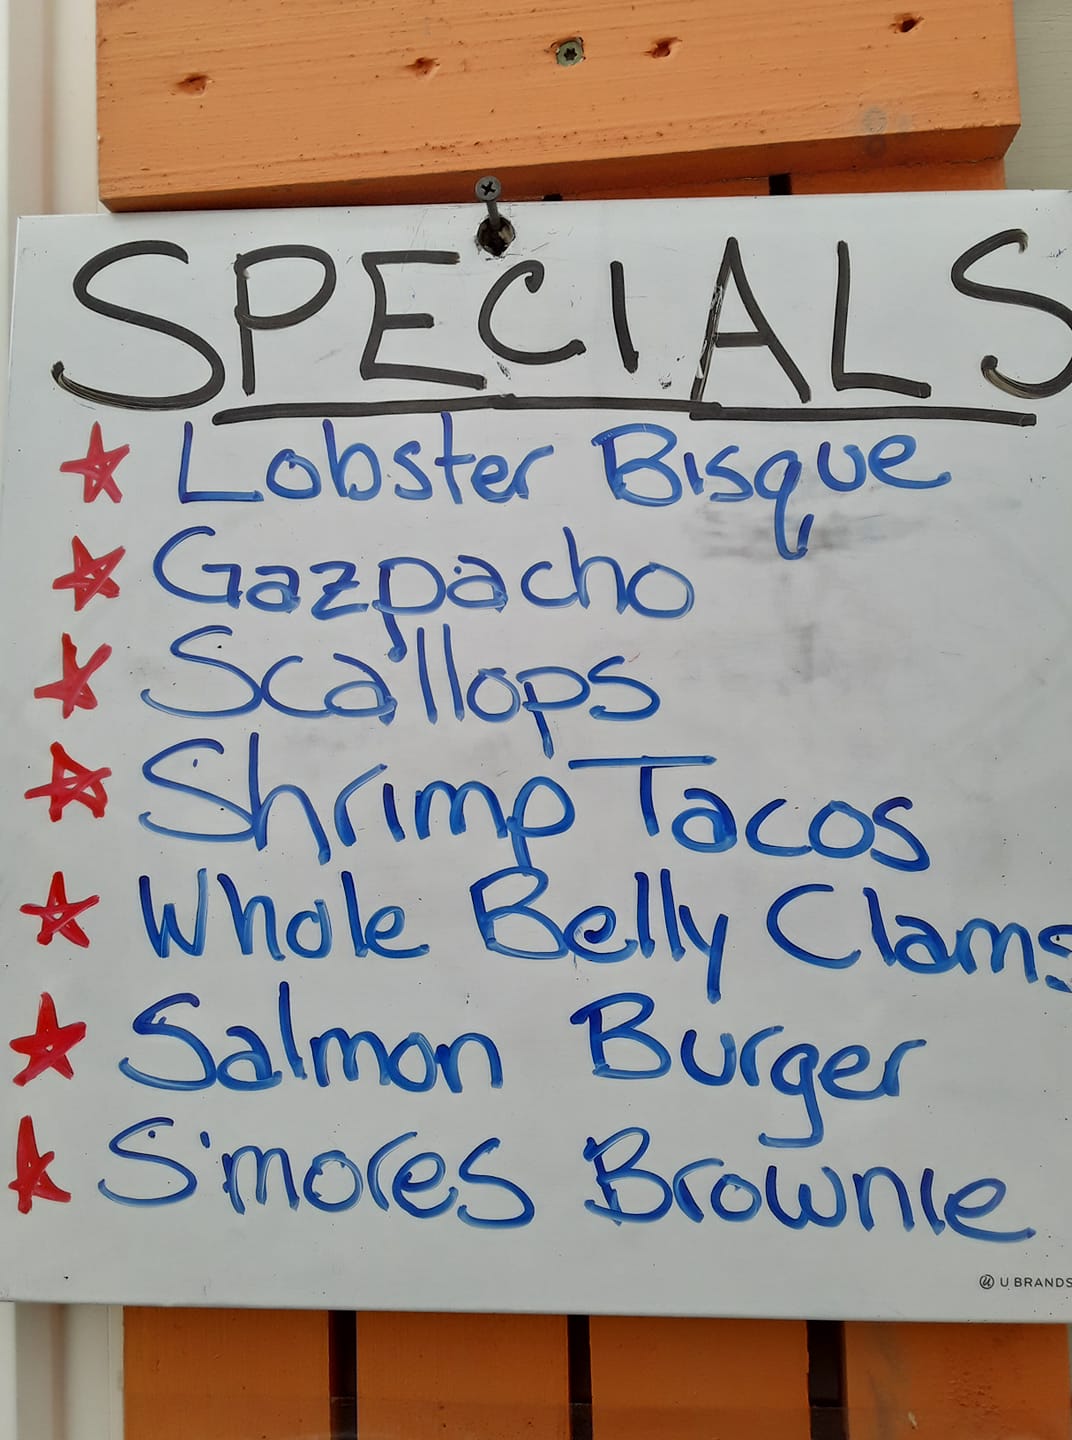 SPECIALS
Lobster Bisque
Gazpacho
Scallops
Shrimp Tacos
Whole Belly Clams
Salmon Burger
S'mores Brownie
U BRANDS